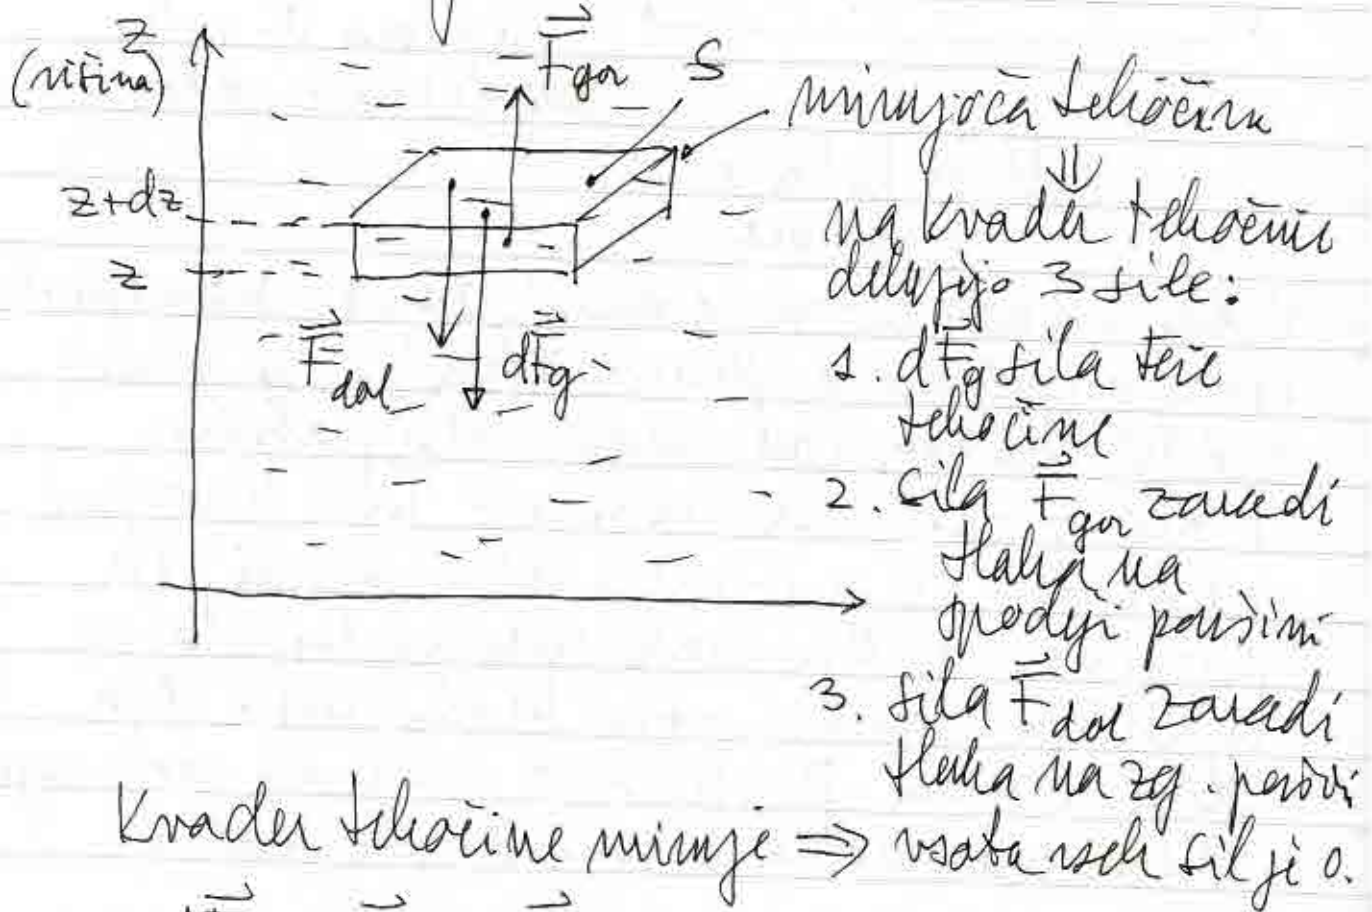 z
(višina)
F⃗gor
S
mirujoča tekočina
⇓
z+dz
z
na kvader tekočine
delujejo 3 sile:
F⃗dol
dF⃗g
1. dF⃗g sila teže
tekočine
2. sila F⃗gor zaradi
tlaka na
spodnji površini
3. sila F⃗dol zaradi
tlaka na zg. površi
Kvader tekočine miruje ⇒ vsota vseh sil je 0.